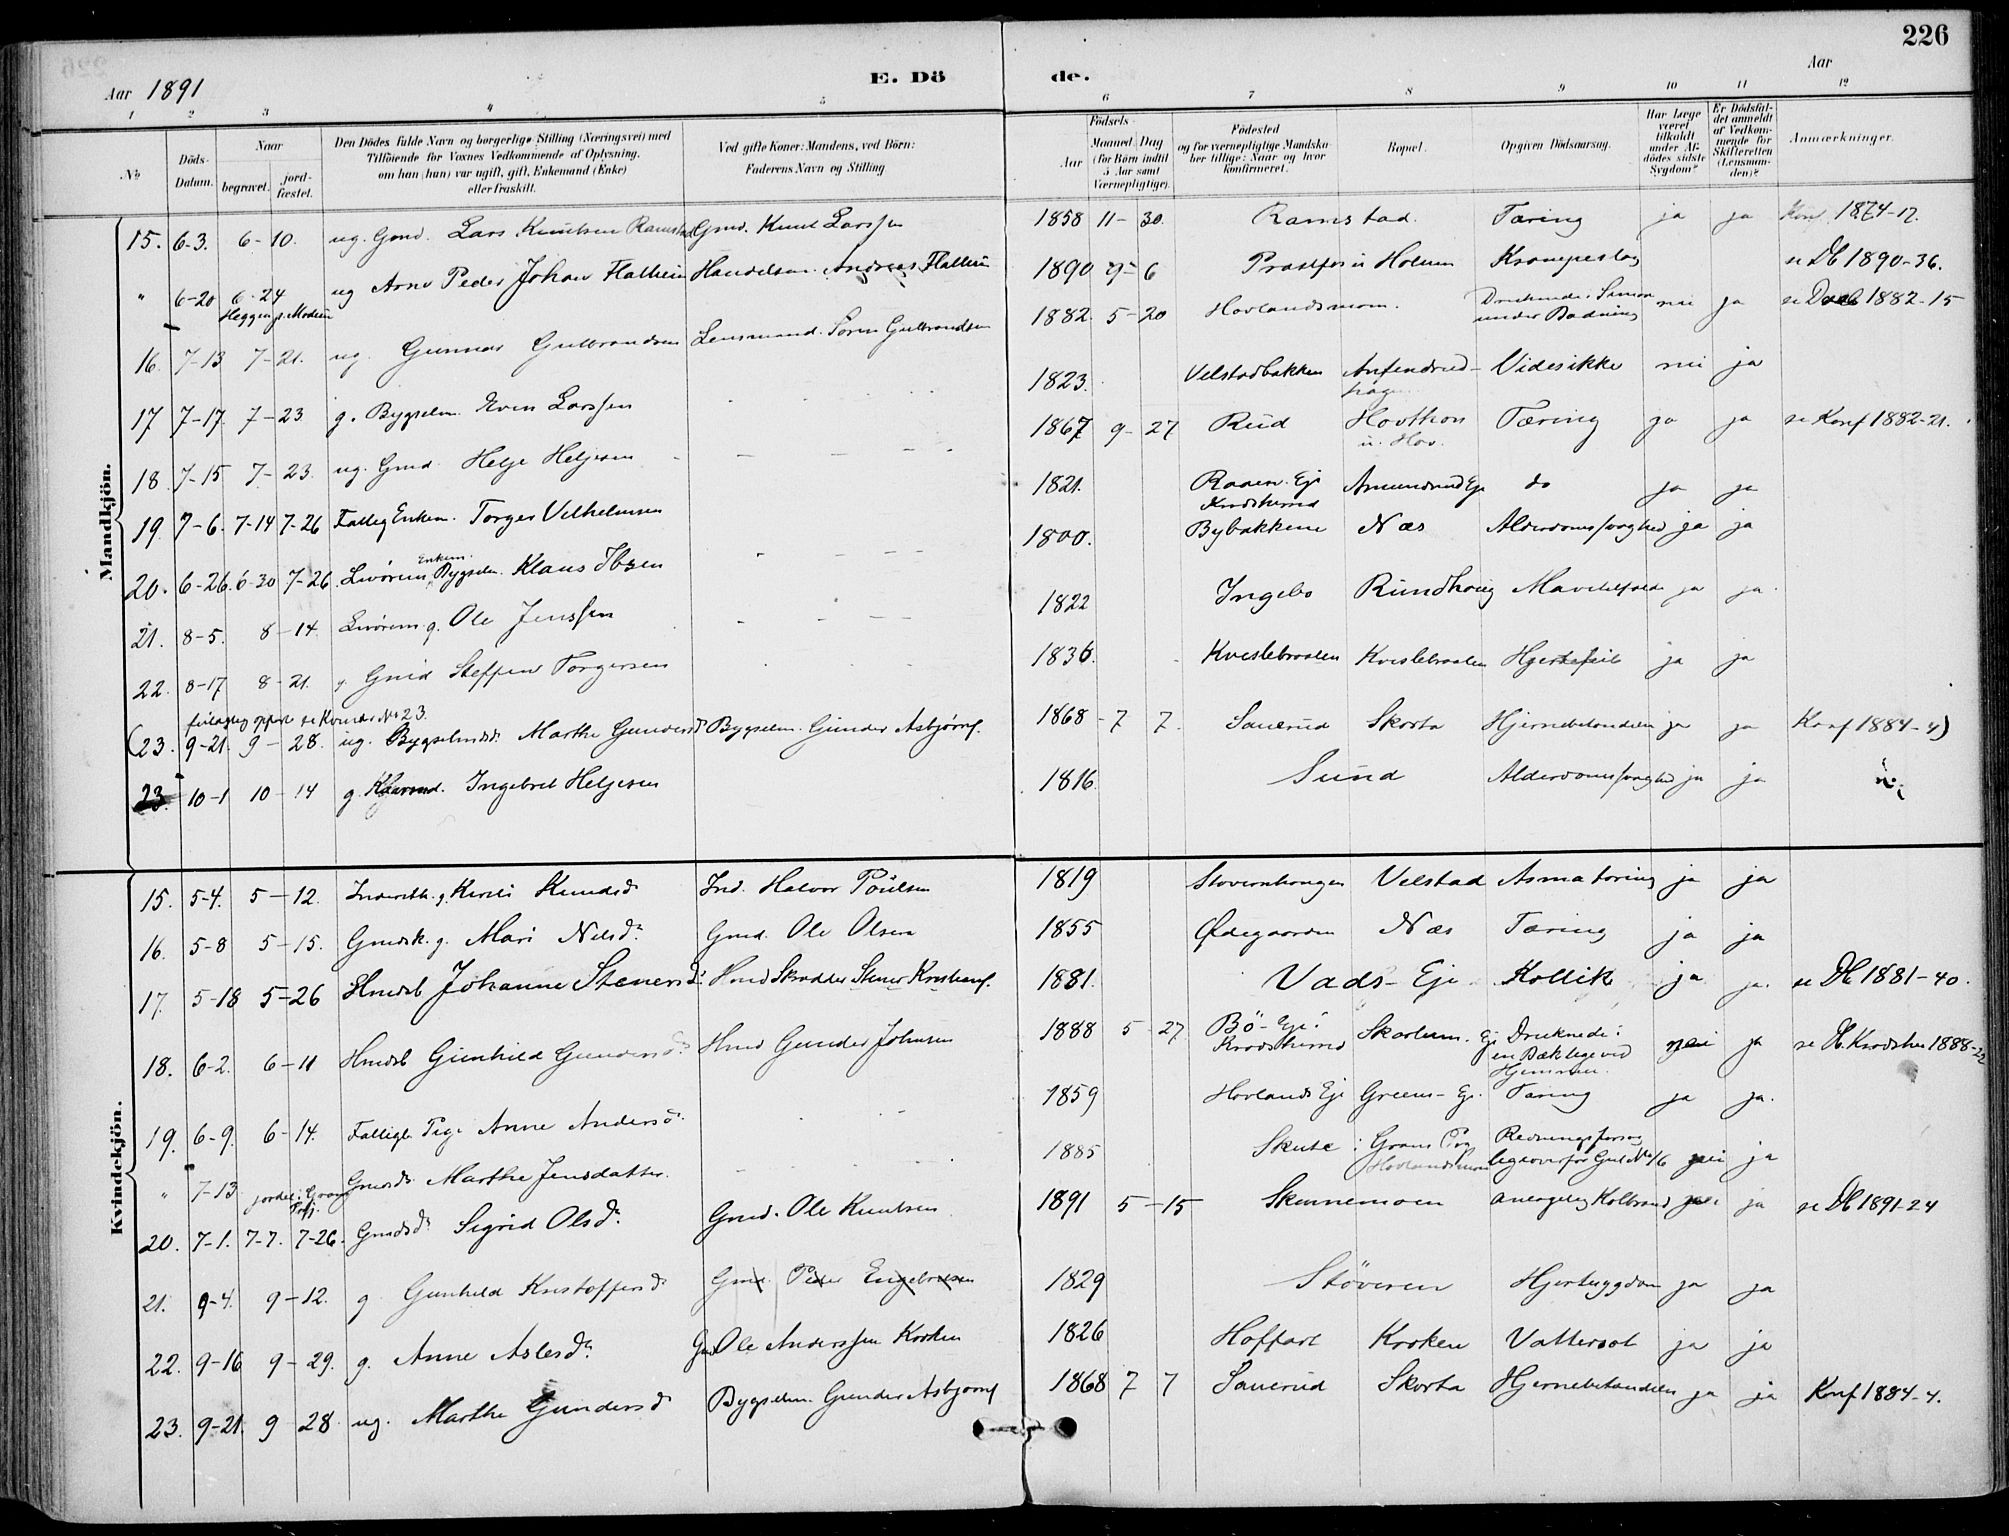 226
Aar 1891
E. Dö
de.
Aar
1 2 3 4 5 6 7 8 9 10 11 12
No
Döds-Datum.
Naar
begravet.
jord-fæstet.
Den Dödes fulde Navn og borgerlige Stilling (Næringsvei) med
Tilföiende for Voxnes Vedkommende af Oplysning,
om han (hun) var ugift, gift, Enkemand (Enke)
eller fraskilt.
Ved gifte Koner: Mandens, ved Börn:
Faderens Navn og Stilling
Födsels-
Aar
Maaned Dag
(for Börn indtil
5 Aar samt
Værnepligtige).
Födested
og for værnepligtige Mandska-
ber tillige: Naar og hvor
konfirmeret.
Bopæl.
Opgiven Dödsaarsag.
Har Læge
været
tilkaldt
under Af-
dödes sidste
Sygdom?
Er Dödsfal-
det anmeldt
af Vedkom-
mende for
Skifteretten
(Lensman-
den)?
Anmærkninger.
Mandkjön.
15. 6-3. 6-10. ug. Gmd. Lars Knutsen Ramstad Gmd. Knut Larssen 1858 11-30. Ramstad. Tæring ja ja Konf. 1874-12.
" 6-20 6-24 ug Arne Peder Johan Flattum Handelsm. Andreas Flattum 1890 9-6 Holum se Db 1890-36.
Heggen p. Modum
16. 7-13 7-21. ug. Gunnar Gulbrandsen Lensmand Søren Gulbrandsen 1882. 5-20 Hovlandsmoen. Druknede i Simoa under Badning nei ja se Daab 1882-15
17 7-17. 7-23 g. Bygselm. Even Larssen 1823. Velstadbakken Vides ikke nei ja
18 7-15 7-23. ug. Gmd. Helge Helgesen 1867 9-27 Rud Tæring ja ja se Konf 1882-21.
19. 7-6. 7-14 7-26 Fattig Enkem. Torger Vilhelmsen 1821. Raaen Eje Krødsherred Amundrud Eje do ja ja
20. 6-26. 6-30 7-26. Livørem. Enkem. Bygselm. Klaus Ibsen 1800. Bybakkene Næs Alderdomssvaghed ja ja
21. 8-5. 8-14. Livørem. g. Ole Jenssen 1822 Ingebo Rundhoug ja ja.
22. 8-17 8-21. g Gmd Steffen Torgersen 1836. Kveslebraaten Kveslebraaten Hjertefeil ja ja
feilagtig opført se Kvinder No 23.
(23. 9-21. 9-28. ug. Bygselmdd. Marthe Gundersd. Bygselm. Gunder Asbjørns. 1868-7 7. Sanerud Skorta Hjernebetændelse ja ja Konf 1884-4)
23. 10-1 10-14 g. Ingebret Helgesen 1816. Sund Alderdomssvaghed ja ja
Kvindekjön.
15. 5-4. 5-12. Inderstk. g. Kirsti Knudsdr Ind. Halvor Poulsen 1819 Velstad Asma tæring ja ja
16. 5-8 5-15. Gmdsk. g. Mari Nilsdr. Gmd. Ole Olsen 1855 Ødegaarden Næs Tæring ja ja
17. 5-18 5-26 Hmdsb Johanne Stenersdr. Hmd Skrædder Stener Kristians. 1881. Vads-Eje Kollik ja ja. se Db 1881-40.
18. 6-2. 6-11 Hmdsb Gunhild Gundersdr. Hmd Gunder Johnsen 1888 5-27 Bø-Eje i Krødsherred Skarlum. Eje Druknede i en Bæk lige ved Hjemmet. nei ja se Db. Krødsher 1888-22
19. 6-9. 6-14. Fattigl. Pige Anne Andersdr. 1859 Hovlands Eje Greens-Eje. Tæring ja ja.
" 7-13 jordet i Gran Prgj. Gmdsdr Marthe Jensdatter. 1885 Skute i Grans Prg Hovlandsmoen Redningsforsøg ligeoverfor No 16 nei ja
20. 7-1. 7-7. 7-26. Gmdsdr Sigrid Olsdr. Gmd. Ole Knutsen 1891 5-15 Skinnemoen ja se Db 1891-24
21. 9-4. 9-12. g. Gunhild Kristoffersdr Gmd. Peder Engebretsen 1829 Støveren Hjertesygdom ja ja
22. 9-16 9-29. g. Anne Aslesdr. Gmd Ole Anderssen Kroken 1826 Hoffart Kroken Vattersot ja ja
23. 9-21. 9-28. ug. Marthe Gundersdr Bygselm. Gunder Asbjørns 1868 7 7 Sanerud Skorta Hjernebetændelse ja ja Konf 1884-4.